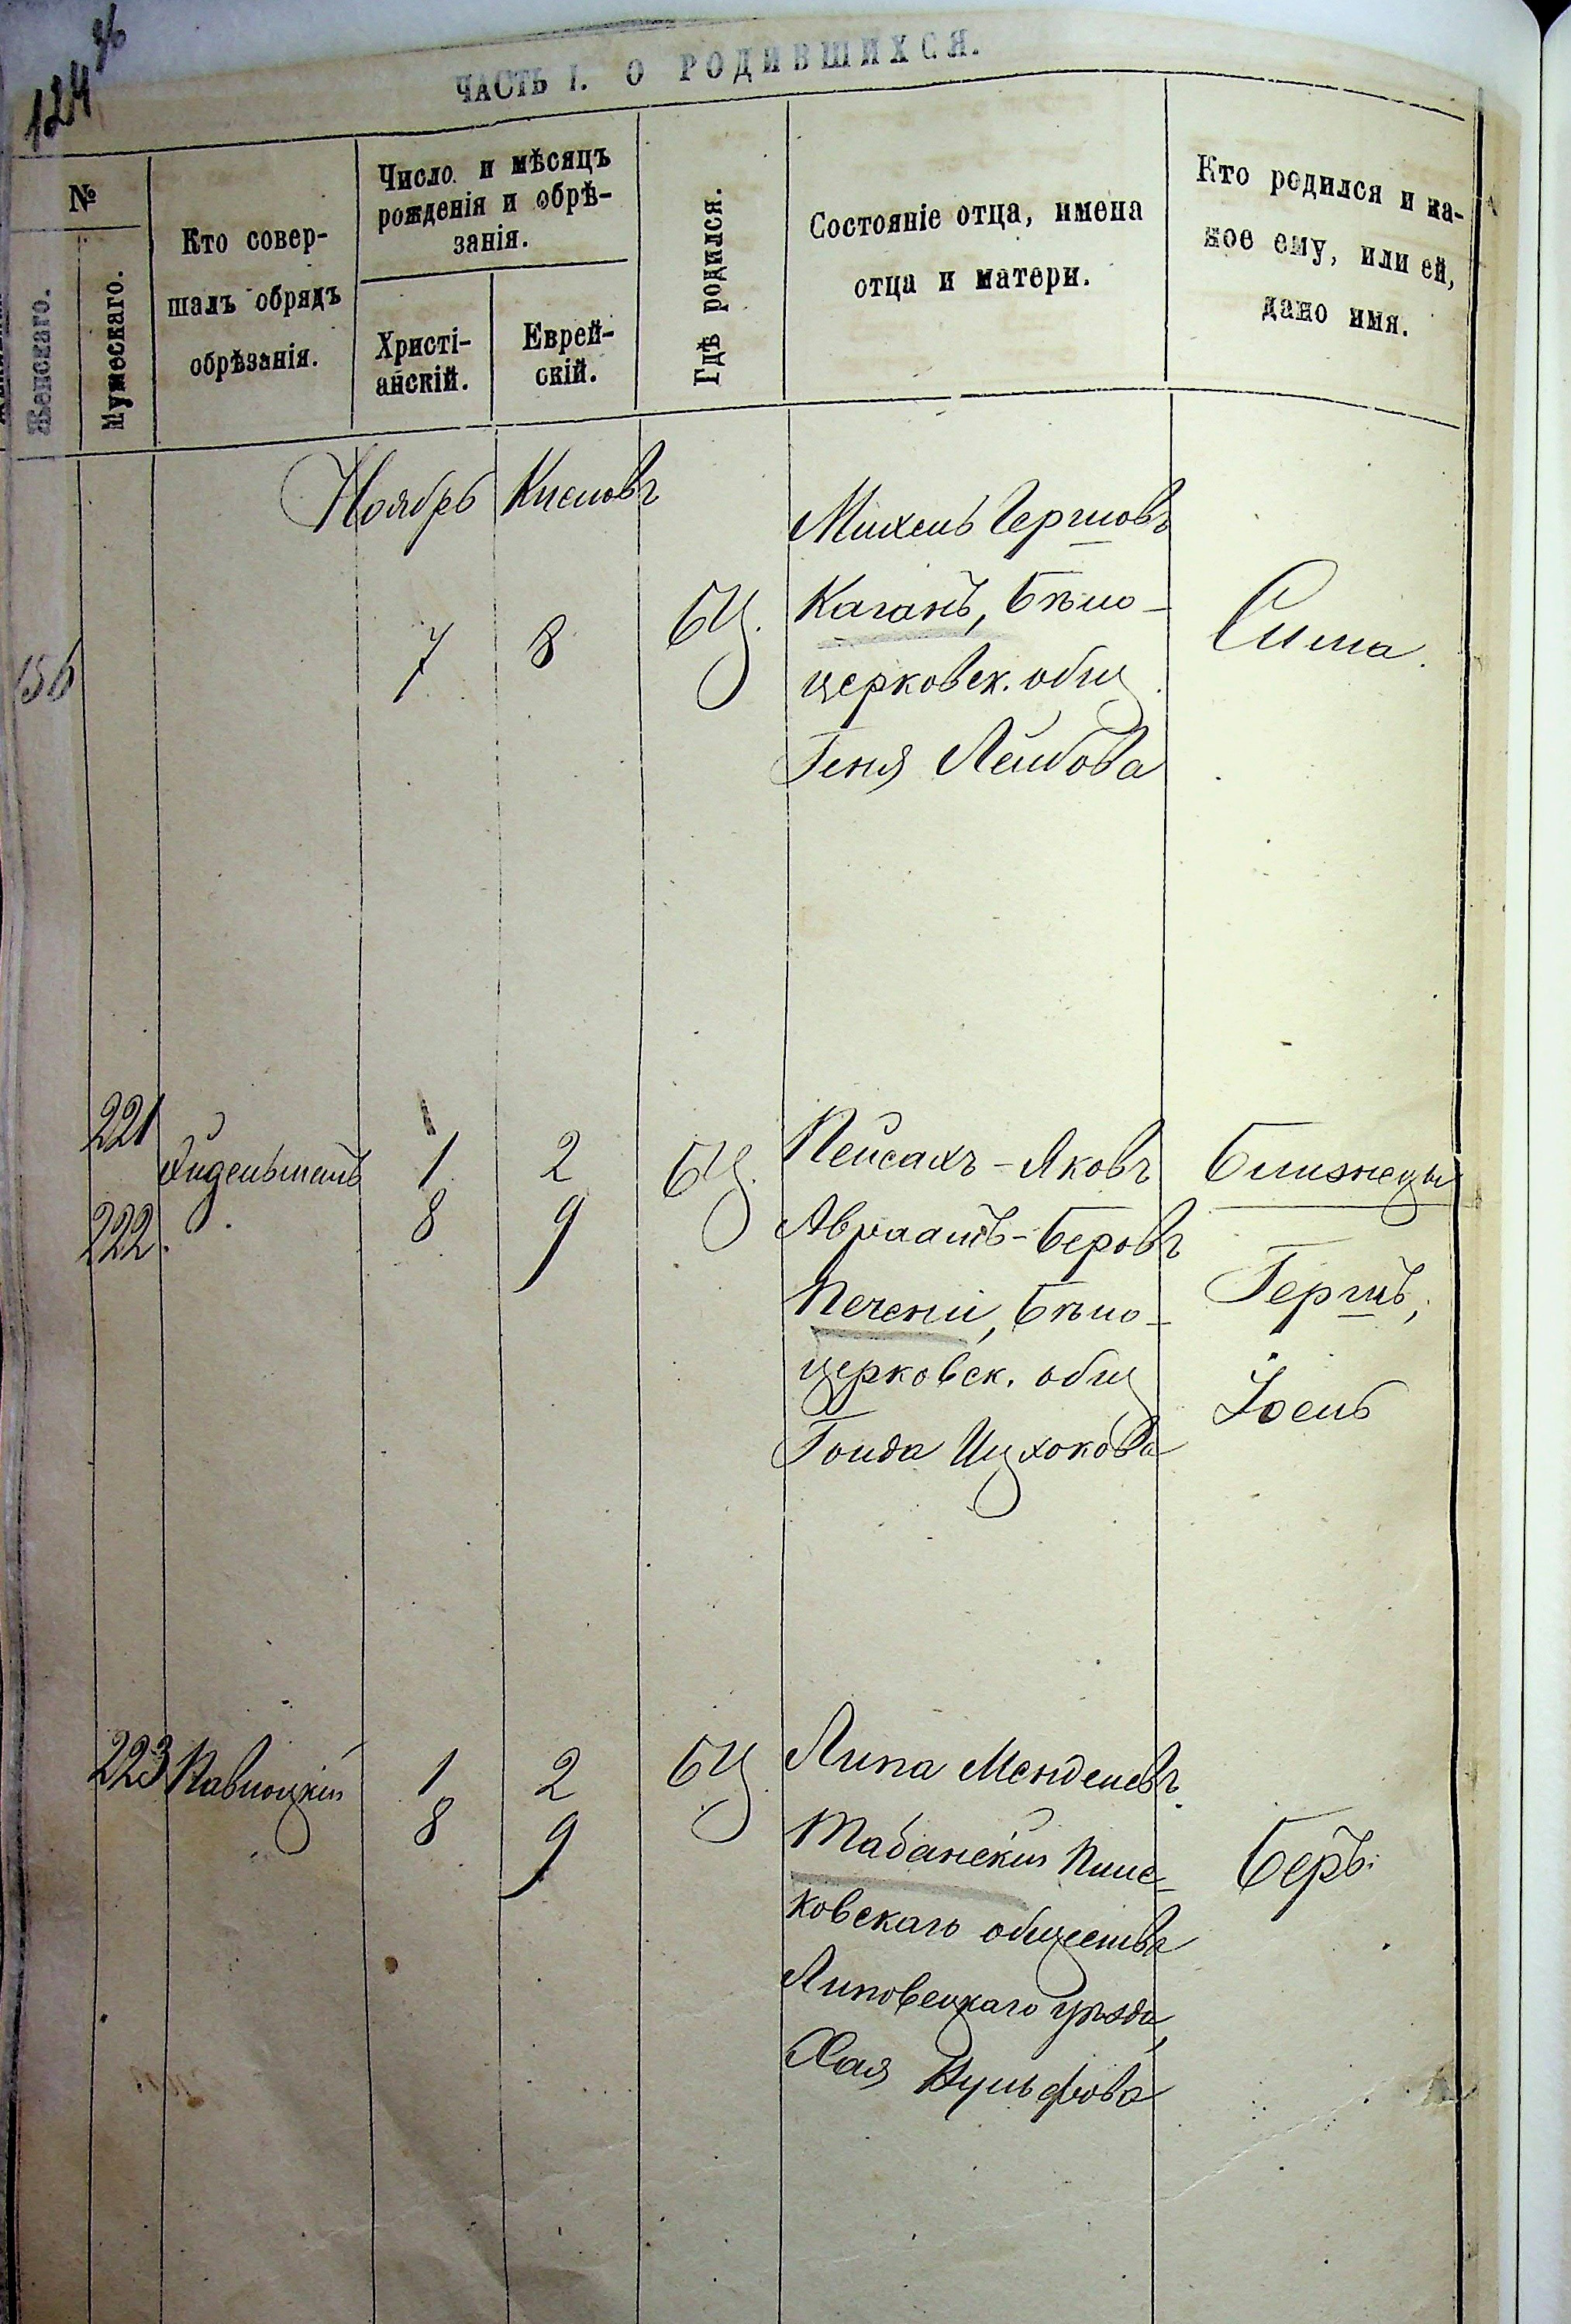 124
ЧАСТЬ I. О РОДИВШИХСЯ.
№
Женскаго.
Мужескаго.
Кто совер-
шалъ обрядъ
обрѣзанія.
Число и мѣсяцъ
рожденія и обрѣ-
занія.
Христі-
анскій.
Еврей-
скій.
Гдѣ родился.
Состояніе отца, имена
отца и матери.
Кто родился и ка-
кое ему, или ей,
дано имя.
Ноябрь Кислевъ
156
7 8 БЦ.
Михель Гершовъ
Каганъ, Бѣло-
церковск. общ.
Геня Лейбова
Сима.
221
222.
1 2 БЦ.
8 9
Пейсахъ-Яковъ
Авраамъ-Беровъ
Печений, Бѣло-
церковск. общ
Голда Ицхокова
Близнецы
Гершъ,
Іосль
223 Павлоцкій 1 2 БЦ.
8 9
Липа Менделевъ
Табанскій Пис-
ковскаго общества
Липовецкаго уѣзда,
Хая Вульфова
Беръ.